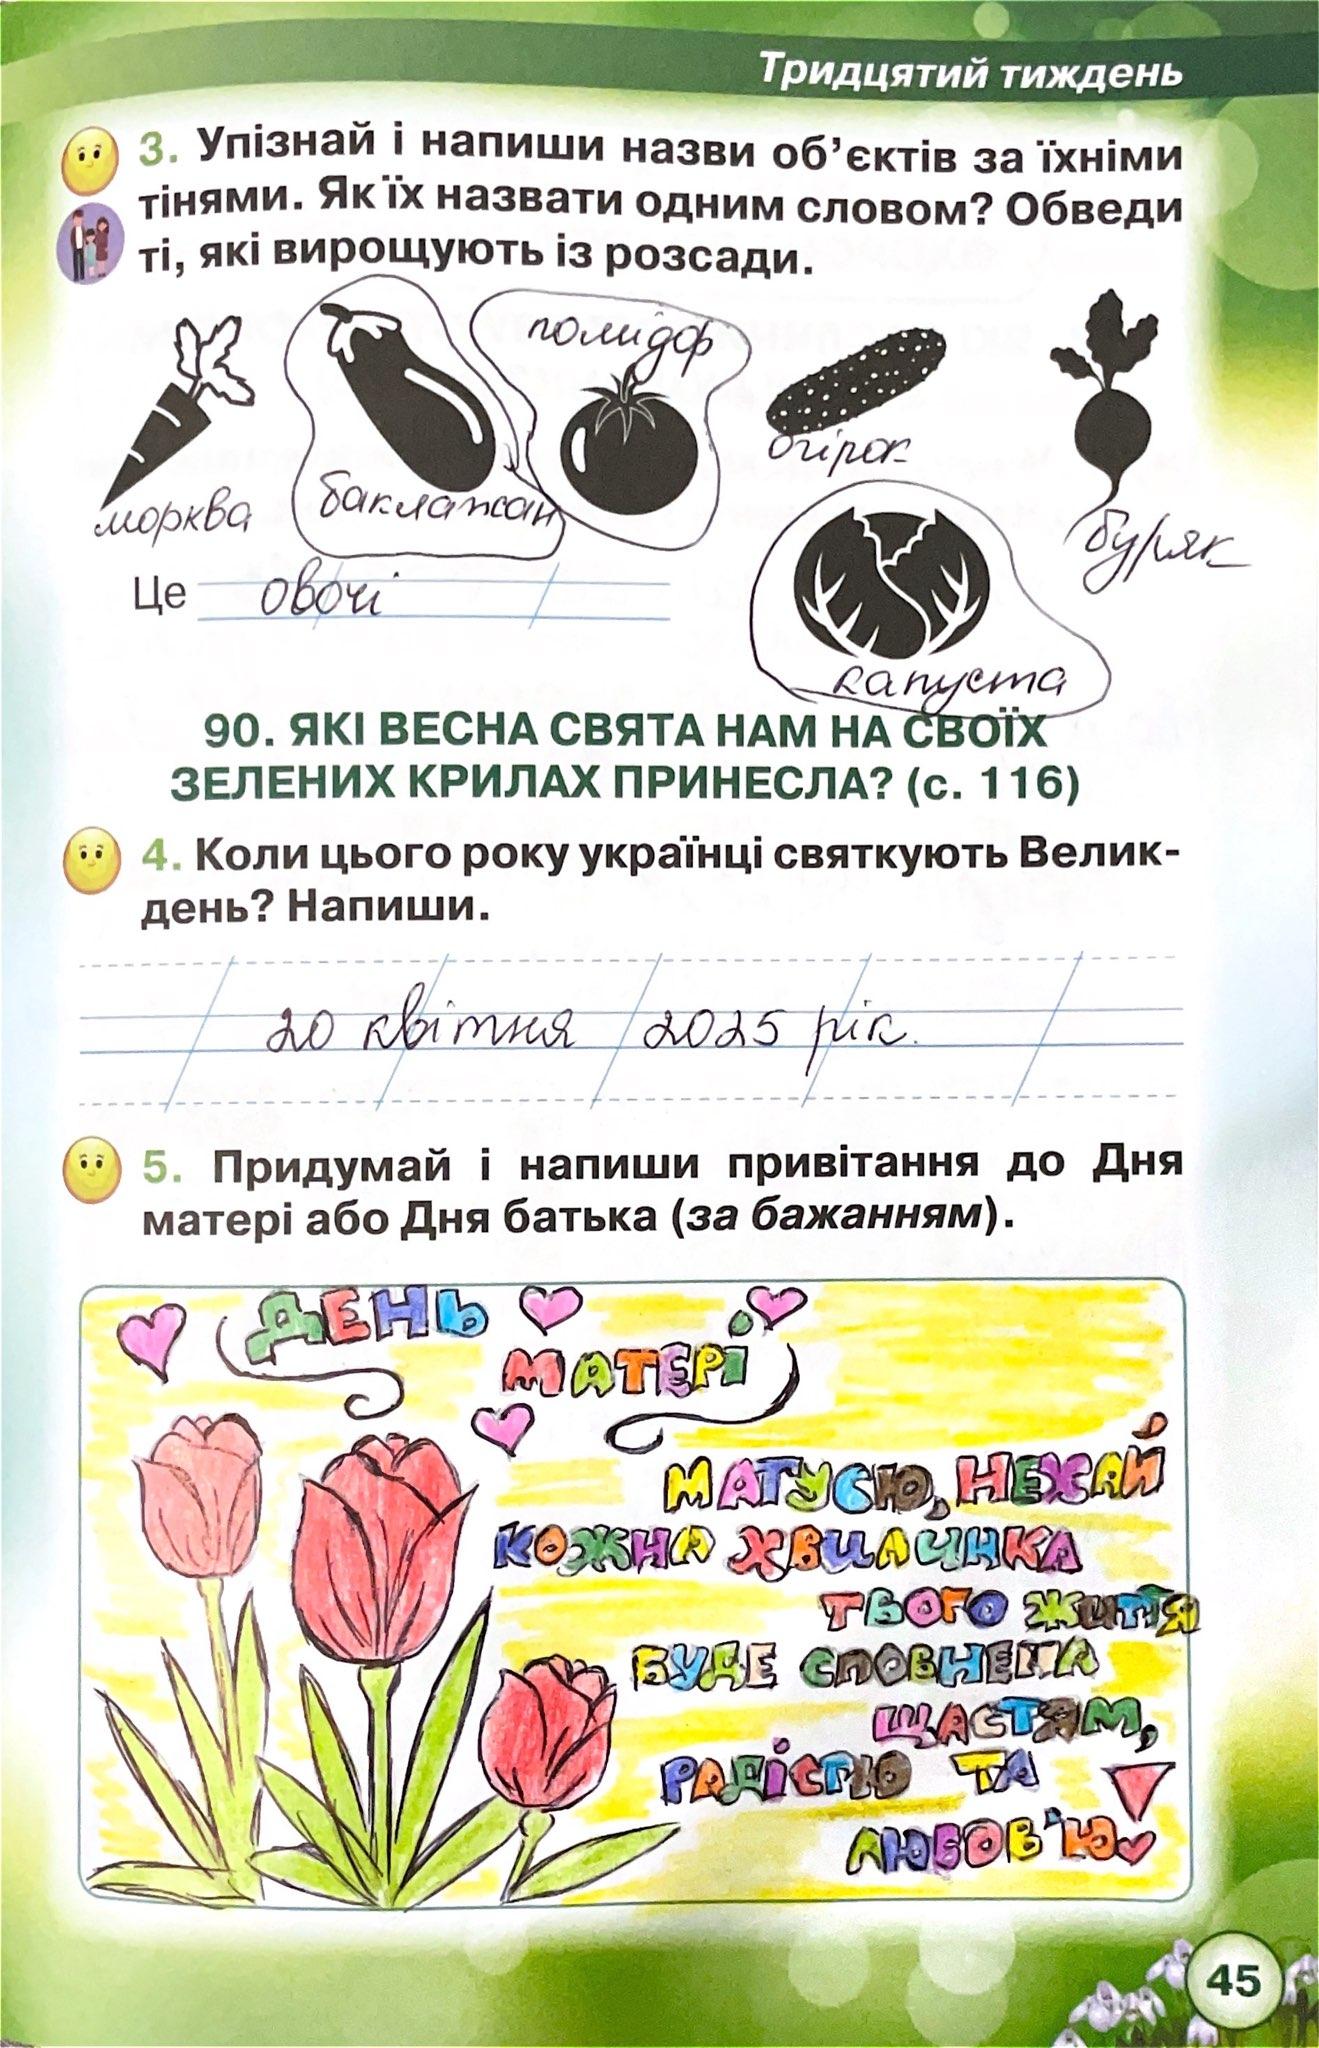 Тридцятий тиждень
3. Упізнай і напиши назви об’єктів за їхніми
тінями. Як їх назвати одним словом? Обведи
ті, які вирощують із розсади.
помідор
огірок
морква
баклажан
буряк
Це овочі
капуста
90. ЯКІ ВЕСНА СВЯТА НАМ НА СВОЇХ
ЗЕЛЕНИХ КРИЛАХ ПРИНЕСЛА? (с. 116)
4. Коли цього року українці святкують Велик-
день? Напиши.
20 квітня 2025 рік.
5. Придумай і напиши привітання до Дня
матері або Дня батька (за бажанням).
ДЕНЬ
МАТЕРІ
МАТУСЮ, НЕХАЙ
КОЖНА ХВИЛИНКА
ТВОГО ЖИТТЯ
БУДЕ СПОВНЕНА
ЩАСТЯМ,
РАДІСТЮ ТА
ЛЮБОВ'Ю
45